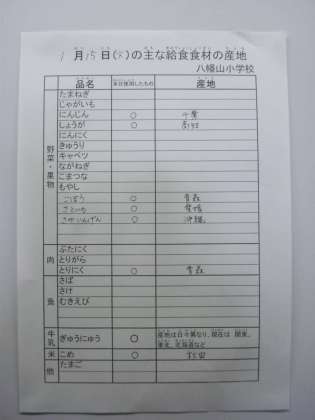 1月15日(火)の主な給食食材の産地
八幡山小学校
品名 本日使用したもの 産地
野菜・果物
たまねぎ
じゃがいも
にんじん ○ 千葉
しょうが ○ 高知
にんにく
きゅうり
キャベツ
ながねぎ
こまつな
もやし
ごぼう ○ 青森
さといも ○ 愛媛
さやいんげん ○ 沖縄
肉
ぶたにく
とりがら
とりにく ○ 青森
魚
さば
さけ
むきえび
牛乳 ぎゅうにゅう ○ 産地は日々異なり、現在は 関東、
東北、北海道など
米 こめ ○ 秋田
他 たまご